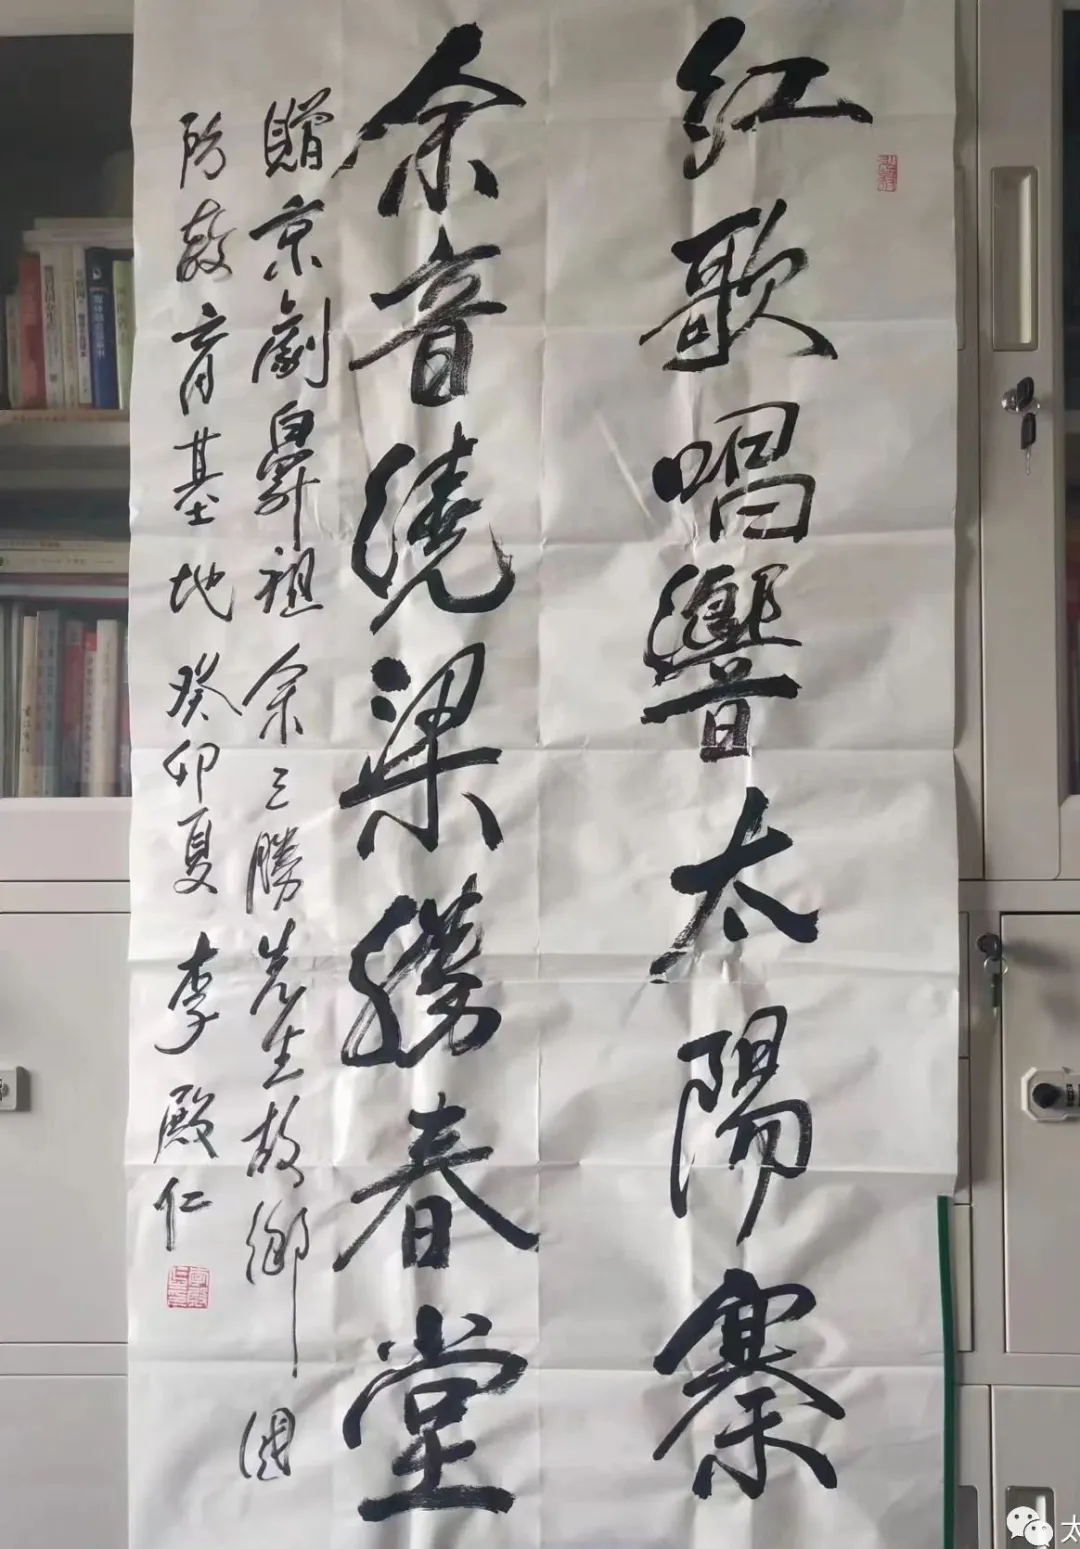 红歌唱響太陽寨
余音繞梁勝春堂
贈京劇鼻祖余三勝先生故鄉國
防教育基地 癸卯夏 李殿仁
太